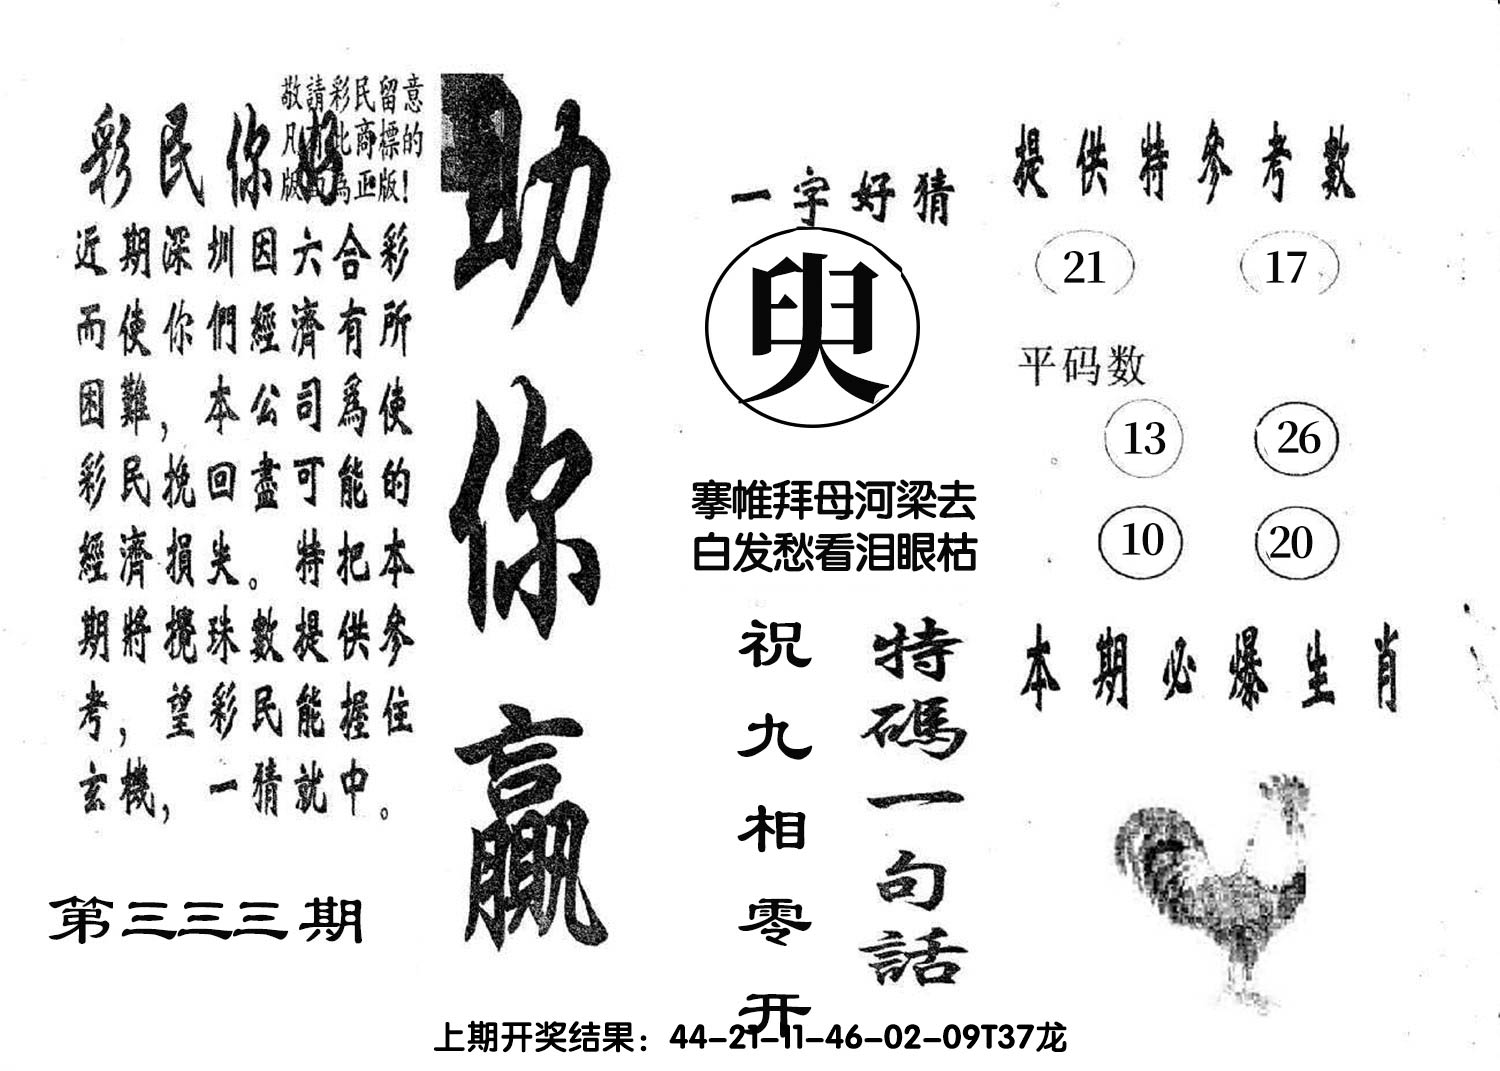 敬請彩民留意
凡有此商標的
版面為正版！
彩民你好
近期深圳因六合彩
而使你們經濟有所
困難，本公司爲使
彩民挽回盡可能的
經濟損失。特把本
期將攪珠數提供參
考，望彩民能握住
玄機，一猜就中。
第三三三期
助你贏
一字好猜
臾
搴帷拜母河梁去
白发愁看泪眼枯
特碼一句話
祝九相零开
提供特參考數
21 17
平码数
13 26
10 20
本期必爆生肖
上期开奖结果：44-21-11-46-02-09T37龙